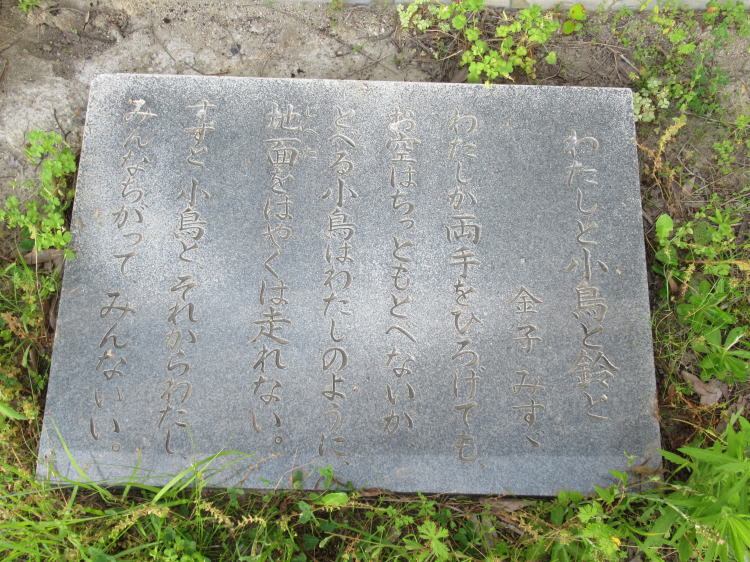 わたしと小鳥と鈴と
金子 みすゞ
わたしが両手をひろげても、
お空はちっともとべないが、
とべる小鳥はわたしのように、
地面をはやくは走れない。
じべた
すずと 小鳥と それからわたし
みんなちがって みんないい。